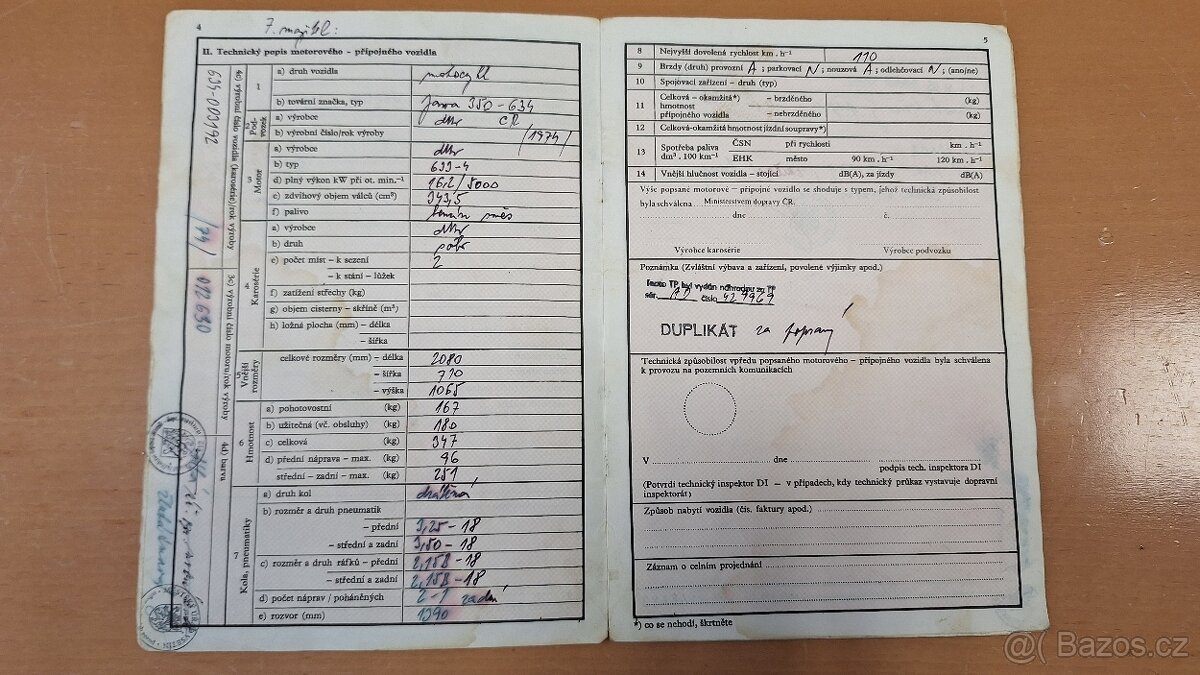 4
7. majitel:
II. Technický popis motorového – přípojného vozidla
4a) výrobní číslo vozidla (karosérie)/rok výroby
634-003192 /74/
3c) výrobní číslo motoru/rok výroby
012630
4d) barva
1
a) druh vozidla motocykl
b) tovární značka, typ Jawa 350-634
2 Podvozek
a) výrobce dtto ČR
b) výrobní číslo/rok výroby /1974/
3 Motor
a) výrobce dtto
b) typ 633-4
d) plný výkon kW při ot. min.⁻¹ 16,2/5000
e) zdvihový objem válců (cm³) 343,5
f) palivo benzin směs
4 Karosérie
a) výrobce dtto
b) druh
c) počet míst – k sezení 2
– k stání – lůžek
f) zatížení střechy (kg)
g) objem cisterny – skříně (m³)
h) ložná plocha (mm) – délka
– šířka
5 Vnější rozměry
celkové rozměry (mm) – délka 2080
– šířka 770
– výška 1065
6 Hmotnost
a) pohotovostní (kg) 167
b) užitečná (vč. obsluhy) (kg) 180
c) celková (kg) 347
d) přední náprava – max. (kg) 96
střední – zadní – max. (kg) 251
7 Kola, pneumatiky
a) druh kol drátěná
b) rozměr a druh pneumatik
– přední 3,25-18
– střední a zadní 3,50-18
c) rozměr a druh ráfků – přední 2,15B-18
– střední a zadní 2,15B-18
d) počet náprav / poháněných 2-1 zadní
e) rozvor (mm) 1390
5
8 Nejvyšší dovolená rychlost km . h⁻¹ 110
9 Brzdy (druh) provozní A; parkovací N; nouzová A; odlehčovací N; (anojne)
10 Spojovací zařízení – druh (typ)
11 Celková – okamžitá*) – brzděného (kg)
hmotnost
přípojného vozidla – nebrzděného (kg)
12 Celková-okamžitá hmotnost jízdní soupravy*)
13 Spotřeba paliva ČSN při rychlosti km . h⁻¹
dm³ . 100 km⁻¹ EHK město 90 km . h⁻¹ 120 km . h⁻¹
14 Vnější hlučnost vozidla – stojící dB(A), za jízdy dB(A)
Výše popsané motorové – přípojné vozidlo se shoduje s typem, jehož technická způsobilost
byla schválena Ministerstvem dopravy ČR.
dne č.
Výrobce karosérie Výrobce podvozku
Poznámka (Zvláštní výbava a zařízení, povolené výjimky apod.)
Tento TP byl vydán náhradou za TP
sér. AD číslo 427969
DUPLIKÁT za popsaný
Technická způsobilost vpředu popsaného motorového – přípojného vozidla byla schválena
k provozu na pozemních komunikacích
V dne
podpis tech. inspektora DI
(Potvrdí technický inspektor DI – v případech, kdy technický průkaz vystavuje dopravní
inspektorát)
Způsob nabytí vozidla (čís. faktury apod.)
Záznam o celním projednání
*) co se nehodí, škrtněte
@( Bazos.cz